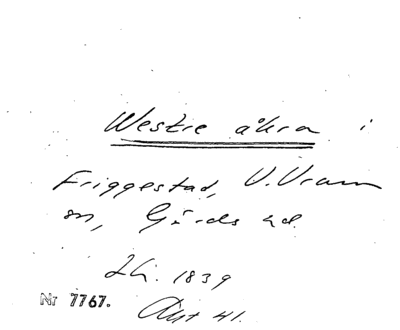 Westre åkra i
Friggestad, V. Vram
sn, Gärds hd.
Lh. 1839
Nr 7767. Akt 41.